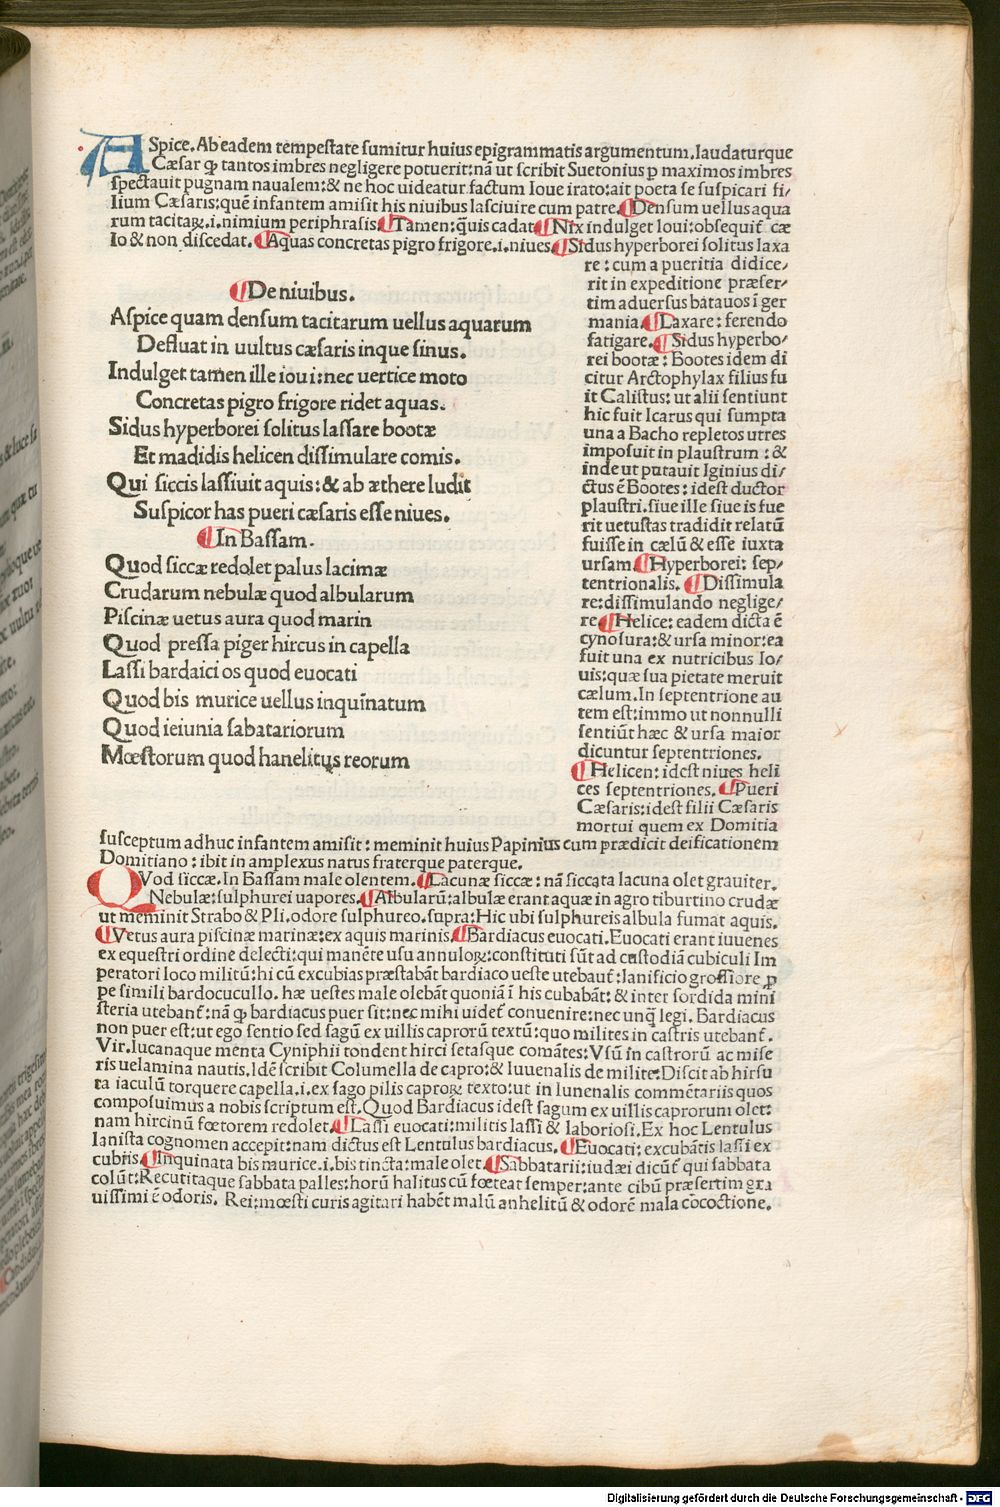 ASpice. Ab eadem tempestate sumitur huius epigrammatis argumentum. laudaturque
Cæsar ꝙ tantos imbres negligere potuerit: nã ut scribit Suetonius p maximos imbres
spectauit pugnam naualem: & ne hoc uideatur factum Ioue irato: ait poeta se suspicari fi/
lium Cæsaris: quẽ infantem amisit his niuibus lasciuire cum patre. ¶ Densum uellus aqua
rum tacitaꝝ. i. nimium periphrasis. ¶ Tamen: q̃uis cadat. ¶ Nix indulget Ioui: obsequit̃ cæ
lo & non discedat. ¶ Aquas concretas pigro frigore. i. niues. ¶ Sidus hyperborei solitus laxa
re: cum a pueritia didice/
rit in expeditione præser/
tim aduersus batauos ĩ ger
mania. ¶ Laxare: ferendo
fatigare. ¶ Sidus hyperbo/
rei bootæ: Bootes idem di
citur Arctophylax filius fu
it Calistus: ut alii sentiunt
hic fuit Icarus qui sumpta
una a Bacho repletos utres
imposuit in plaustrum: &
inde ut putauit Iginius di/
ctus ẽ Bootes: idest ductor
plaustri. siue ille siue is fue
rit uetustas tradidit relatũ
fuisse in cælũ & esse iuxta
ursam. ¶ Hyperborei: sep/
tentrionalis. ¶ Dissimula
re: dissimulando neglige/
re. ¶ Helice: eadem dicta ẽ
cynosura: & ursa minor: ea
fuit una ex nutricibus Io/
uis: quæ sua pietate meruit
cælum. In septentrione au
tem est: immo ut nonnulli
sentiũt hæc & ursa maior
dicuntur septentriones.
¶ Helicen: idest niues heli
ces septentriones. ¶ Pueri
Cæsaris: idest filii Cæsaris
mortui quem ex Domitia
¶ De niuibus.
Aspice quam densum tacitarum uellus aquarum
Defluat in uultus cæsaris inque sinus.
Indulget tamen ille ioui: nec uertice moto
Concretas pigro frigore ridet aquas.
Sidus hyperborei solitus lassare bootæ
Et madidis helicen dissimulare comis.
Qui siccis lassiuit aquis: & ab æthere ludit
Suspicor has pueri cæsaris esse niues.
¶ In Bassam.
Quod siccæ redolet palus lacimæ
Crudarum nebulæ quod albularum
Piscinæ uetus aura quod marin
Quod pressa piger hircus in capella
Lassi bardaici os quod euocati
Quod bis murice uellus inquinatum
Quod ieiunia sabatariorum
Mœstorum quod hanelitus reorum
susceptum adhuc infantem amisit: meminit huius Papinius cum prædicit deificationem
Domitiano: ibit in amplexus natus fraterque paterque.
QVod siccæ. In Bassam male olentem. ¶ Lacunæ siccæ: nã siccata lacuna olet grauiter.
Nebulæ: sulphurei uapores. ¶ Albularũ: albulæ erant aquæ in agro tiburtino crudæ
ut meminit Strabo & Pli. odore sulphureo. supra: Hic ubi sulphureis albula fumat aquis.
¶ Vetus aura piscinæ marinæ: ex aquis marinis. ¶ Bardiacus euocati. Euocati erant iuuenes
ex equestri ordine delecti: qui manẽte usu annuloꝝ: constituti sũt ad custodiã cubiculi Im
peratori loco militũ: hi cũ excubias præstabãt bardiaco ueste utebant̃: lanificio grossiore ꝓ
pe simili bardocucullo. hæ uestes male olebãt quoniã ĩ his cubabãt: & inter sordida mini
steria utebant̃: nã ꝙ bardiacus puer sit: nec mihi uidet̃ conuenire: nec unq̃ legi. Bardiacus
non puer est: ut ego sentio sed sagũ ex uillis caprorũ textũ: quo milites in castris utebant̃.
Vir. Iucanaque menta Cyniphii tondent hirci setasque comãtes: Vsũ in castrorũ ac mise
ris uelamina nautis. Idẽ scribit Columella de capro: & Iuuenalis de milite: Discit ab hirsu
ta iaculũ torquere capella. i. ex sago pilis caproꝝ texto: ut in Iunenalis commẽtariis quos
composuimus a nobis scriptum est. Quod Bardiacus idest sagum ex uillis caprorum olet:
nam hircinũ fœtorem redolet. ¶ Lassi euocati: militis lassi & laboriosi. Ex hoc Lentulus
lanista cognomen accepit: nam dictus est Lentulus bardiacus. ¶ Euocati: excubãtis lassi ex
cubiis. ¶ Inquinata bis murice. i. bis tincta: male olet. ¶ Sabbatarii: iudæi dicũt̃ qui sabbata
colũt: Recutitaque sabbata palles: horũ halitus cũ fœteat semper: ante cibũ præsertim gra
uissimi ẽ odoris. Rei: mœsti curis agitari habẽt malũ anhelitũ & odorẽ mala cõcoctione.
Digitalisierung gefördert durch die Deutsche Forschungsgemeinschaft - DFG